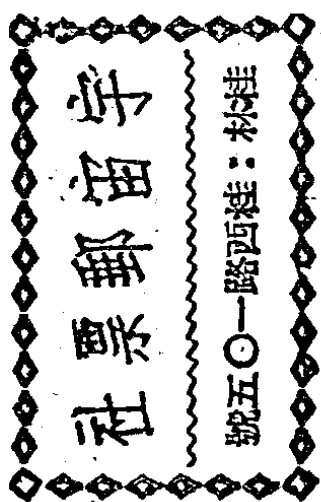 宇宙郵票社
桂林：桂西路一〇五號